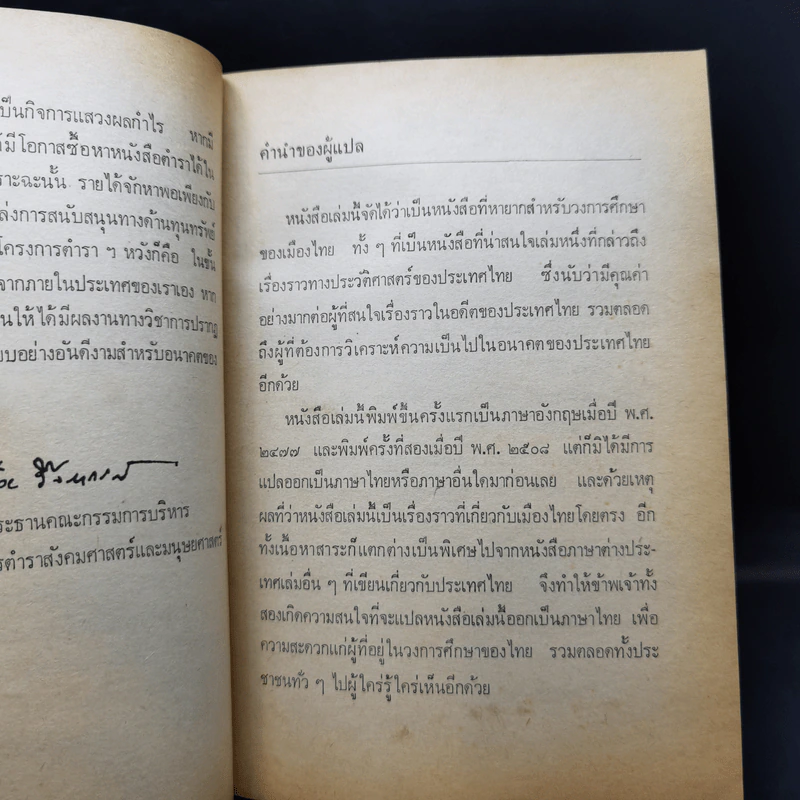 เป็นกิจการแสวงผลกำไร หากมี
มีโอกาสซื้อหาหนังสือตำราได้ใน
ราะฉะนั้น รายได้จักหาพอเพียงกับ
ล่งการสนับสนุนทางด้านทุนทรัพย์
โครงการตำรา ฯ หวังก็คือ ในขั้น
จากภายในประเทศของเราเอง หาก
นให้ได้มีผลงานทางวิชาการปรากฏ
บบอย่างอันดีงามสำหรับอนาคตของ
ระธานคณะกรรมการบริหาร
รตำราสังคมศาสตร์และมนุษยศาสตร์
คำนำของผู้แปล
หนังสือเล่มนี้จัดได้ว่าเป็นหนังสือที่หายากสำหรับวงการศึกษา
ของเมืองไทย ทั้ง ๆ ที่เป็นหนังสือที่น่าสนใจเล่มหนึ่งที่กล่าวถึง
เรื่องราวทางประวัติศาสตร์ของประเทศไทย ซึ่งนับว่ามีคุณค่า
อย่างมากต่อผู้ที่สนใจเรื่องราวในอดีตของประเทศไทย รวมตลอด
ถึงผู้ที่ต้องการวิเคราะห์ความเป็นไปในอนาคตของประเทศไทย
อีกด้วย
หนังสือเล่มนี้พิมพ์ขึ้นครั้งแรกเป็นภาษาอังกฤษเมื่อปี พ.ศ.
๒๔๗๗ และพิมพ์ครั้งที่สองเมื่อปี พ.ศ. ๒๕๐๘ แต่ก็มิได้มีการ
แปลออกเป็นภาษาไทยหรือภาษาอื่นใดมาก่อนเลย และด้วยเหตุ
ผลที่ว่าหนังสือเล่มนี้เป็นเรื่องราวที่เกี่ยวกับเมืองไทยโดยตรง อีก
ทั้งเนื้อหาสาระก็แตกต่างเป็นพิเศษไปจากหนังสือภาษาต่างประ-
เทศเล่มอื่น ๆ ที่เขียนเกี่ยวกับประเทศไทย จึงทำให้ข้าพเจ้าทั้ง
สองเกิดความสนใจที่จะแปลหนังสือเล่มนี้ออกเป็นภาษาไทย เพื่อ
ความสะดวกแก่ผู้ที่อยู่ในวงการศึกษาของไทย รวมตลอดทั้งประ
ชาชนทั่ว ๆ ไปผู้ใคร่รู้ใคร่เห็นอีกด้วย